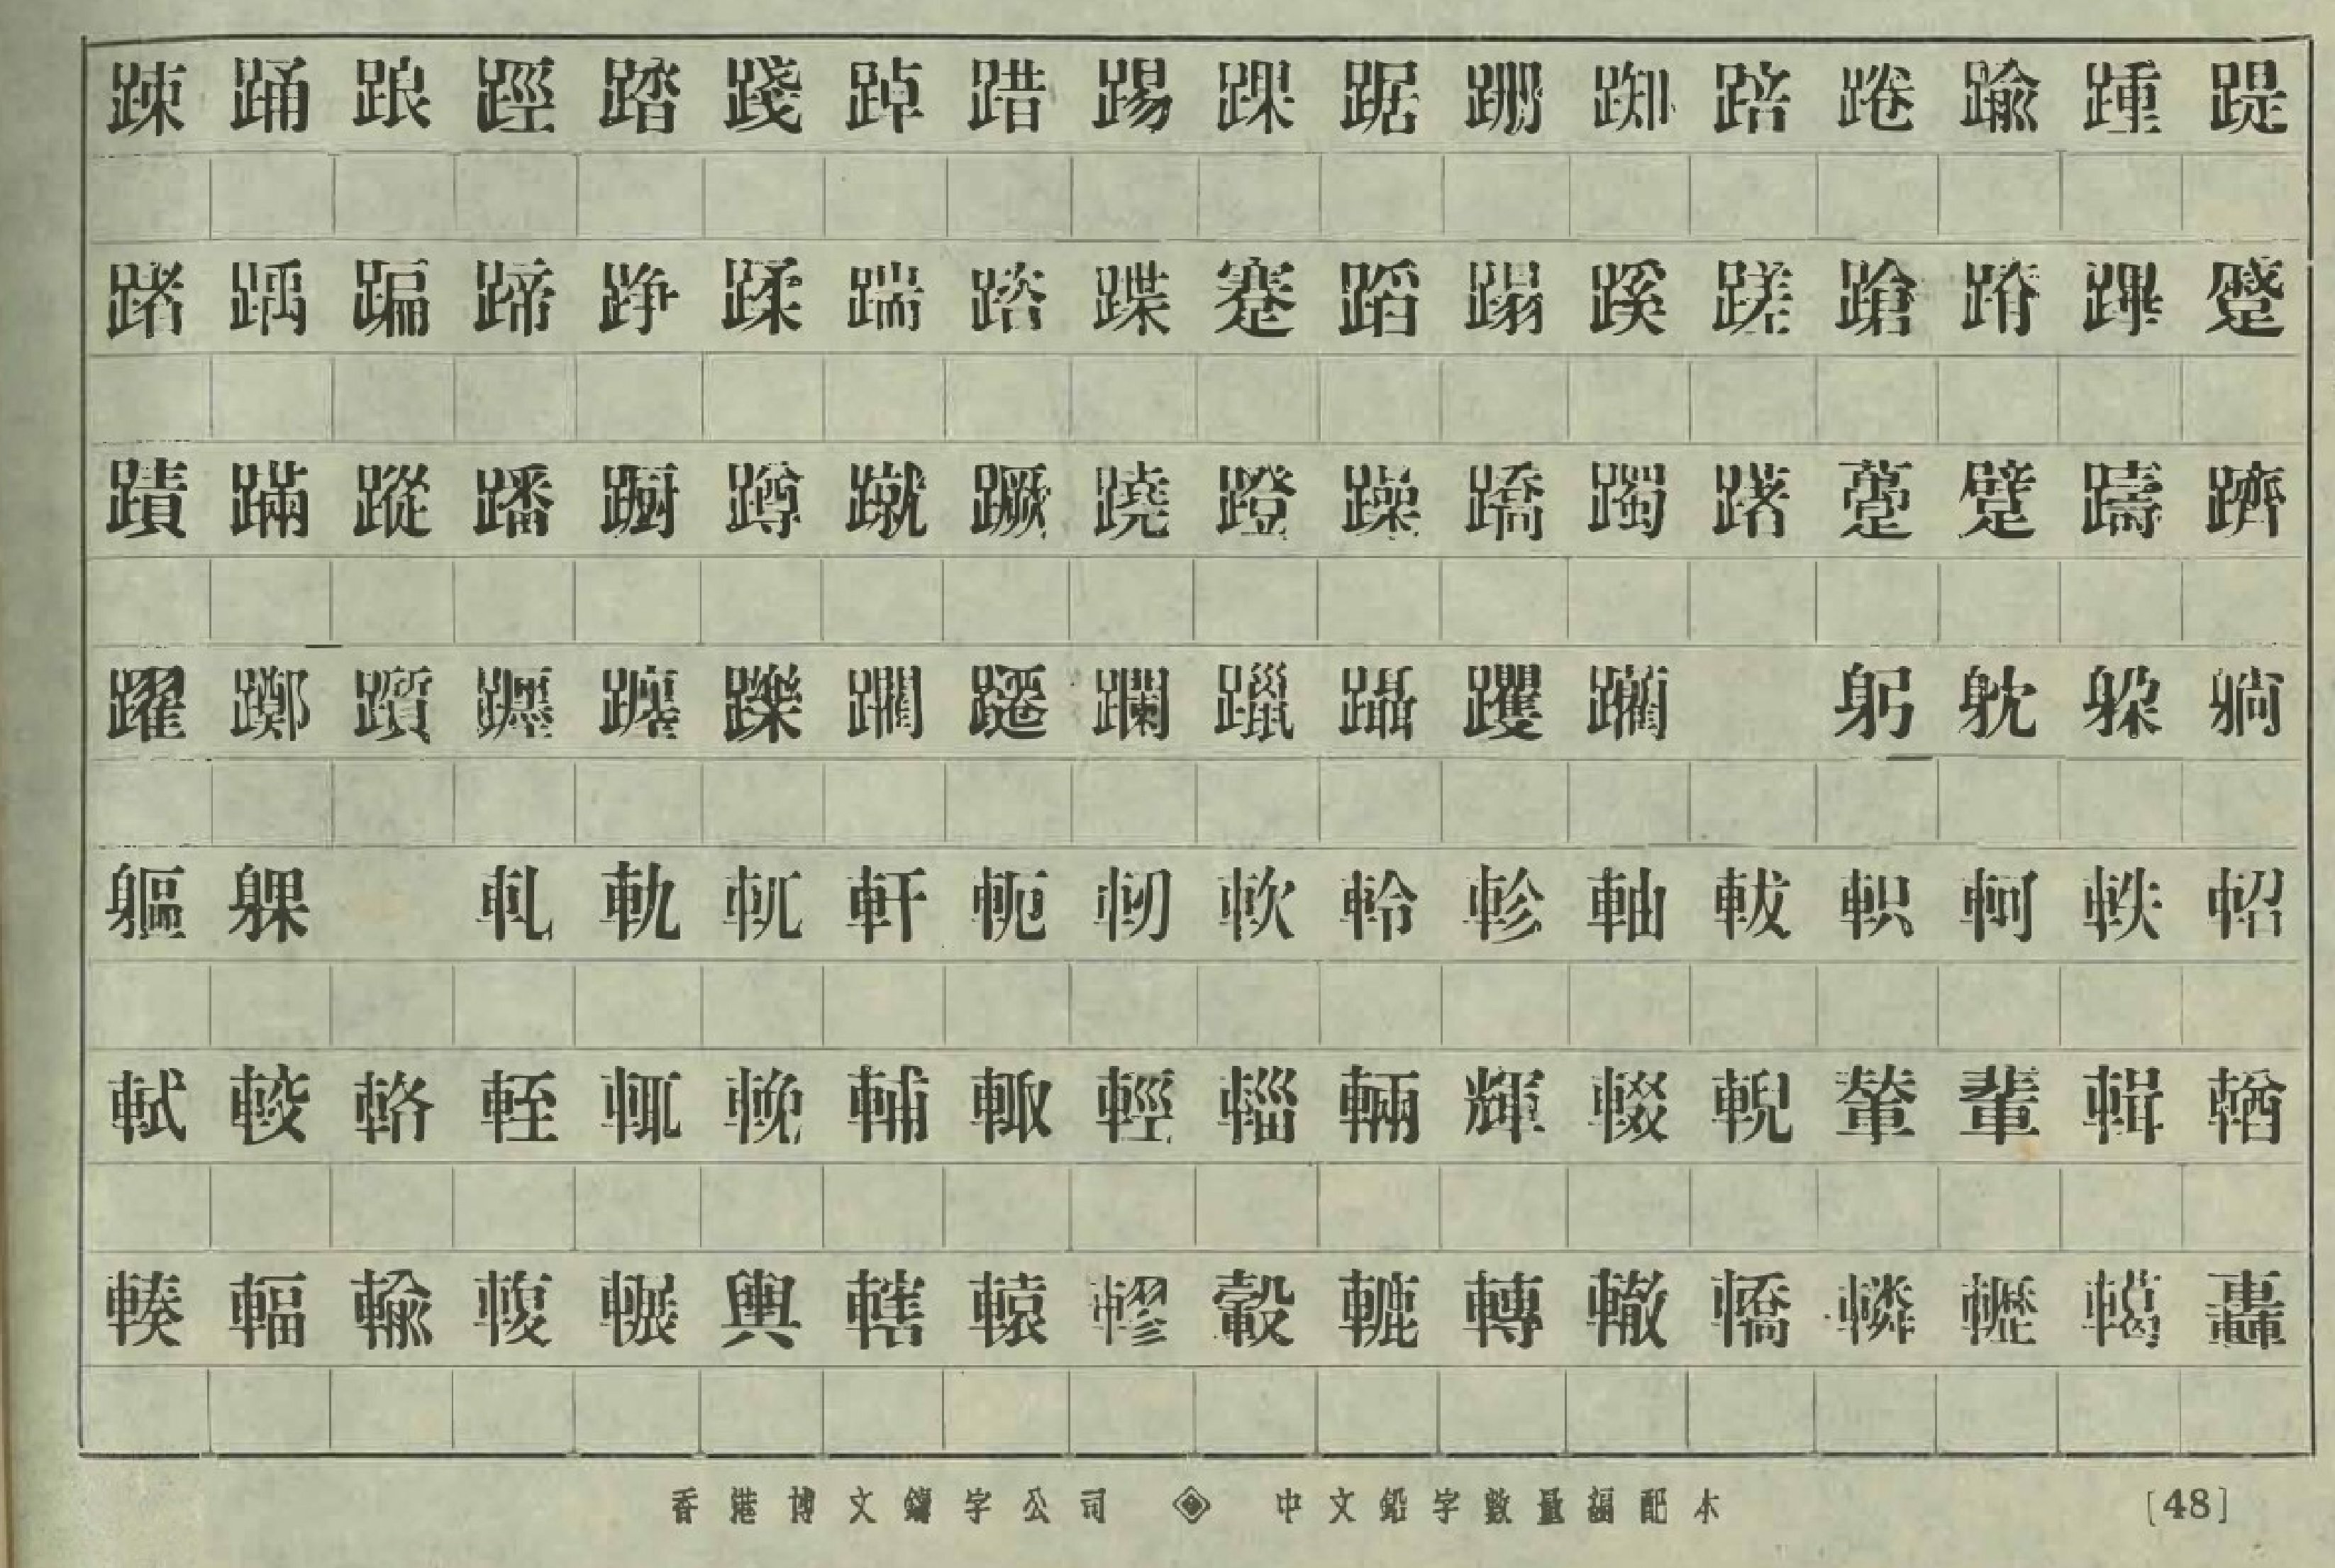 踈踊踉踁踏踐踔踖踢踝踞跚踟踣踡踰踵踶
踷踽蹁蹄踭蹂踹蹀蹇蹈蹋蹊蹉蹌蹐蹕蹙
蹟蹣蹤蹯蹰蹲蹴蹶蹺蹬躁蹻躅躇躉躄躊躋
躍躑躓躔躒躚躝躐躡躩躛 躬躭躲躺
軀躶 軋軌軏軒軛軔軟軨軫軸軷軹軻軼軺
軾較輅輊輒輓輔輙輕輜輛輝輟輗輦輩輯輶
輳輻輸輹輾輿轄轅轇轂轆轉轍轎轔轣轕轟
香港博文鑄字公司 中文鉛字數量編配本 [48]